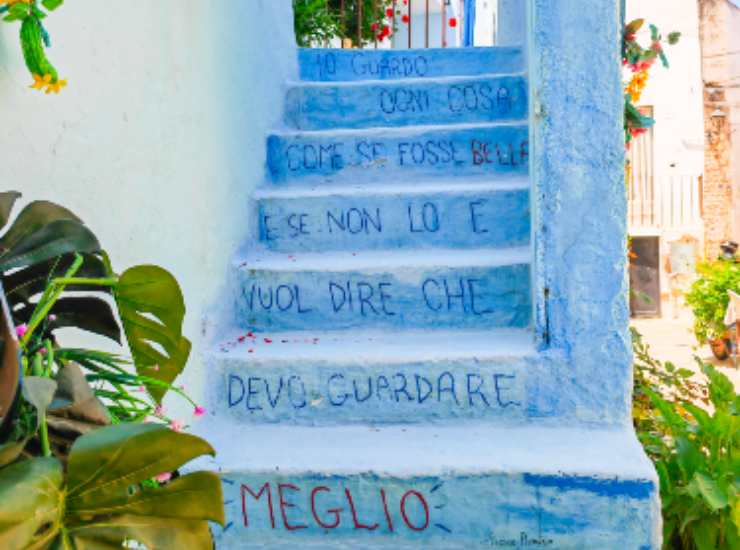 IO GUARDO
OGNI COSA
COME SE FOSSE BELLA
E SE NON LO E
VUOL DIRE CHE
DEVO GUARDARE
MEGLIO